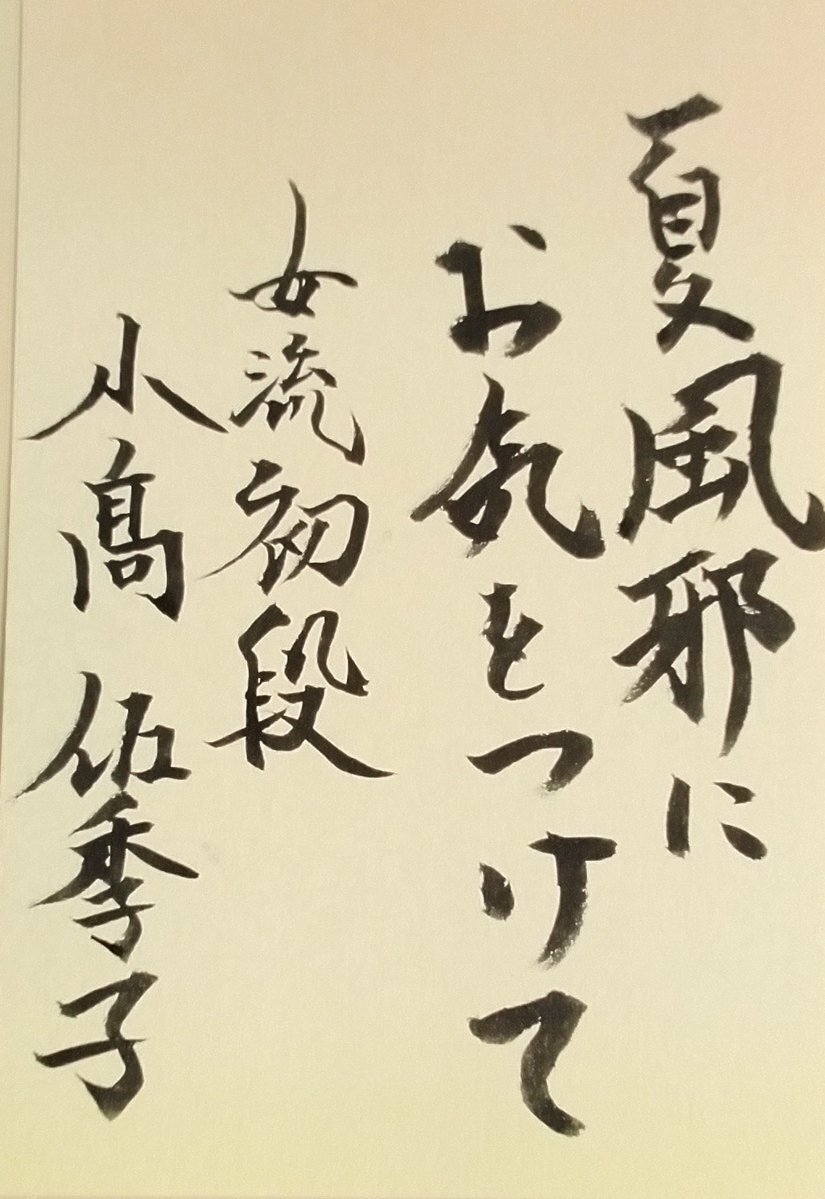 夏風邪に
お気をつけて
女流初段
小髙佐季子